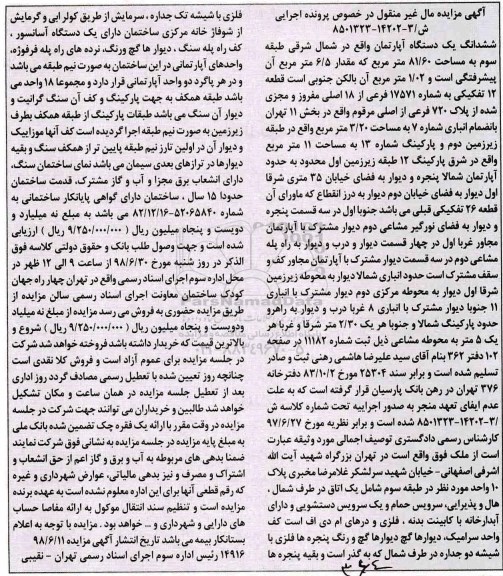 آگهی مزایده مال غیر منقول در خصوص پرونده اجرایی
ش/۳-۱۴۲۰۲-۸۵۰۱۳۲۳
ششدانگ یک دستگاه آپارتمان واقع در شمال شرقی طبقه
سوم به مساحت ۸۱/۶۰ متر مربع که مقدار ۶/۵ متر مربع آن
پیشرفتگی است و ۱/۰۲ متر مربع آن بالکن جنوبی است قطعه
۱۲ تفکیکی به شماره ۱۷۵۷۱ فرعی از ۱۸ اصلی مفروز و مجزی
شده از پلاک ۷۲۰ فرعی از اصلی مرقوم واقع در بخش ۱۱ تهران
بانضمام انباری شماره ۷ به مساحت ۳/۲۰ متر مربع واقع در طبقه
زیرزمین دوم و پارکینگ شماره ۱۳ به مساحت ۱۱ متر مربع
واقع در شرق پارکینگ ۱۲ طبقه زیرزمین اول محدود به حدود
آپارتمان شمالا پنجره و دیوار به فضای خیابان ۳۵ متری شرقا
اول دیوار به فضای خیابان دوم دیوار به درز انقطاع که ماورای آن
قطعه ۲۶ تفکیکی قبلی می باشد جنوبا اول در سه قسمت پنجره
و دیوار به فضای نورگیر مشاعی دوم دیوار مشترک با آپارتمان
مجاور غربا اول در چهار قسمت دیوار و درب و دیوار به راه پله
مشاعی دوم در سه قسمت دیوار مشترک با آپارتمان مجاور کف و
سقف مشترک است حدود انباری شمالا دیوار به محوطه زیرزمین
شرقا اول دیوار به محوطه مرکزی دوم دیوار مشترک با انباری
۱۱ جنوبا دیوار مشترک با انباری ۸ غربا درب و دیوار به راهرو
حدود پارکینگ شمالا و جنوبا هر یک ۲/۳۰ متر شرقا و غربا هر
یک ۵ متر به محوطه مشاعی ذیل ثبت شماره ۱۱۱۸۲ در صفحه
۱۰۲ دفتر ۳۶۲ بنام آقای سید علیرضا هاشمی رهنی ثبت و صادر
تسلیم شده است و برابر سند ۲۵۳۰۴ مورخ ۸۳/۱۰/۲ دفترخانه
۳۷۶ تهران در رهن بانک پارسیان قرار گرفته است که به علت
عدم ایفای تعهد منجر به صدور اجراییه تحت شماره کلاسه ش
/۳-۱۴۲۰۲-۸۵۰۱۳۲۳ شده است و برابر نظریه مورخ ۹۷/۶/۲۷
کارشناس رسمی دادگستری توصیف اجمالی مورد وثیقه عبارت
است از ملک فوق واقع است در تهران بزرگراه شهید آیت الله
اشرفی اصفهانی- خیابان شهید سرلشکر غلامرضا مخبری پلاک
۱۰ واحد مورد نظر در طبقه سوم شامل یک اتاق در طرف شمال ،
هال و پذیرایی، سرویس حمام و یک سرویس دستشویی و دارای
آبدارخانه با کابینت بدنه ، فلزی و درهای ام دی اف است کف
واحد سرامیک، دیوارها گچ دیوارها گچ و رنگ پنجره ها فلزی با
شیشه دو جداره در طرف شمال که به گذر است و بقیه پنجره ها
فلزی با شیشه تک جداره ، سرمایش از طریق کولر ابی و گرمایش
از شوفاژ خانه مرکزی ساختمان دارای یک دستگاه آسانسور ،
کف راه پله سنگ ، دیوار ها گچ ورنگ، نرده های راه پله فرفوژه،
واحدهای آپارتمانی در این ساختمان به صورت نیم طبقه می باشد
و در هر پاگرد دو واحد آپارتمانی قرار دارد و مجموعا ۱۸ واحد می
باشد طبقه همکف به جهت پارکینگ و کف آن سنگ گرانیت و
دیوار آن سنگ می باشد طبقات پارکینگ از طبقه همکف بطرف
زیرزمین به صورت نیم طبقه اجرا گردیده است کف آنها موزاییک
و دیوار آن در اولین تارز نیم طبقه پایین تر از همکف سنگ و بقیه
دیوارها در ترازهای بعدی سیمان می باشد نمای ساختمان سنگ،
دارای انشعاب برق مجزا و آب و گاز مشترک، قدمت ساختمان
حدودا ۱۵ سال ، ساختمان دارای گواهی پایانکار ساختمانی به
شماره ۵۲۰۶۵۸۴۰-۸۲/۱۲/۱۶ می باشد به مبلغ نه میلیارد و
دویست و پنجاه میلیون ریال (۹/۲۵۰/۰۰۰/۰۰۰ ریال ) ارزیابی
شده است و جهت وصول طلب بانک و حقوق دولتی کلاسه فوق
الذکر در روز شنبه مورخ ۹۸/۶/۳۰ از ساعت ۹ الی ۱۲ ظهر در
محل اداره سوم اجرای اسناد رسمی واقع در تهران چهار راه جهان
کودک ساختمان معاونت اجرای اسناد رسمی سالن مزایده از
طریق مزایده حضوری به فروش می رسد مزایده از مبلغ نه میلیارد
ودویست و پنجاه میلیون ریال ( ۹/۲۵۰/۰۰۰/۰۰۰ ریال ) شروع و
بالاترین قیمت که خریدار داشته باشد فروخته خواهد شد شرکت
در جلسه مزایده برای عموم آزاد است و فروش کلا نقدی است
چنانچه روز تعیین شده با تعطیل رسمی مصادف گردد روز اداری
بعد از تعطیل جلسه مزایده در همان ساعت و مکان تشکیل
خواهد شد طالبین و خریداران می توانند جهت شرکت در جلسه
مزایده در وقت مقرر با ارائه یک فقره چک تضمین شده بانک ملی
به مبلغ پایه مزایده در جلسه مزایده به نشانی فوق شرکت نمایند
ضمنا بدهی های مربوطه به آب و برق و گاز اعم از حق انشعاب و
اشتراک و مصرف و نیز بدهی مالیاتی، عوارض شهرداری و غیره
که رقم قطعی آنها برای این اداره معلوم نشده است به عهده برنده
مزایده است و تنظیم سند انتقال موکول به ارائه مفاصا حساب
های دارایی و شهرداری و ... خواهد بود . مزایده با توجه به اعلام
بستانکار بیمه می باشد تاریخ انتشار آگهی مزایده ۹۸/۶/۱۱
۱۴۹۱۶ رئیس اداره سوم اجرای اسناد رسمی تهران - نقیبی